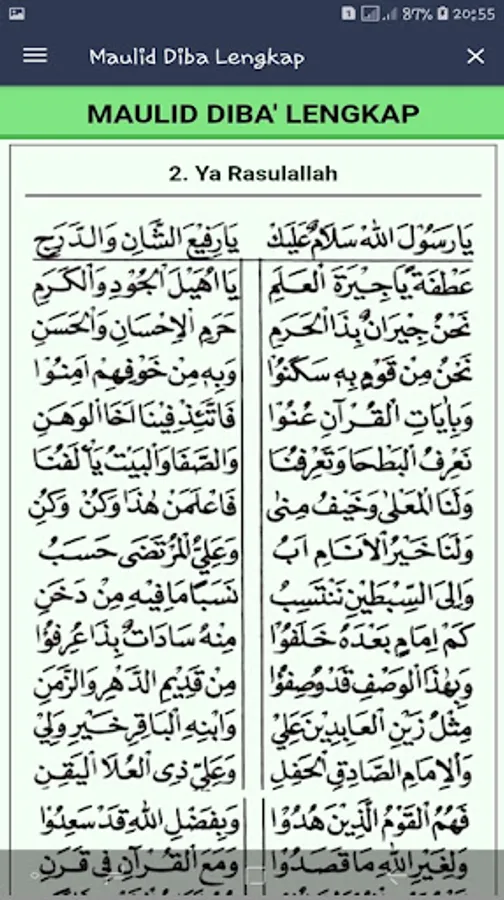 87% 20:55
Maulid Diba Lengkap
MAULID DIBA' LENGKAP
2. Ya Rasulallah
يَارَسُوْلَ اللهْ سَلَامٌ عَلَيْكَ يَارَفِيْعَ الشَّانِ وَالدَّرَجِ
عَطْفَةً يَّاجِيْرَةَ الْعَلَمِ يَا اُهَيْلَ الْجُوْدِ وَالْكَرَمِ
نَحْنُ جِيْرَانٌ بِذَا الْحَرَمِ حَرَمِ الْاِحْسَانِ وَالْحَسَنِ
نَحْنُ مِنْ قَوْمٍ بِهِ سَكَنُوْا وَبِهِ مِنْ خَوْفِهِمْ اَمِنُوْا
وَبِاٰيَاتِ الْقُرْآنِ عُنُوْا فَاتَّئِدْ فِيْنَا اَخَا الْوَهَنِ
نَعْرِفُ الْبَطْحَا وَتَعْرِفُنَا وَالصَّفَا وَالْبَيْتُ يَأْلَفُنَا
وَلَنَا الْمَعْلٰى وَخَيْفُ مِنٰى فَاعْلَمَنْ هٰذَا وَكُنْ وَكُنِ
وَلَنَا خَيْرُ الْاَنَامِ اَبُ وَعَلِيُّ الْمُرْتَضَى حَسَبُ
وَاِلَى السِّبْطَيْنِ نَنْتَسِبُ نَسَبًا مَا فِيْهِ مِنْ دَخَنِ
كَمْ اِمَامٍ بَعْدَهُ خَلَفُوْا مِنْهُ سَادَاتٌ بِذَا عُرِفُوْا
وَبِهٰذَا الْوَصْفِ قَدْ وُصِفُوْا مِنْ قَدِيْمِ الدَّهْرِ وَالزَّمَنِ
مِثْلُ زَيْنِ الْعَابِدِيْنَ عَلِيْ وَابْنِهِ الْبَاقِرِ خَيْرِ وَلِيْ
وَالْاِمَامِ الصَّادِقِ الْحَفِلِ وَعَلِيٍّ ذِى الْعُلَا الْيَقِنِ
فَهُمُ الْقَوْمُ الَّذِيْنَ هُدُوْا وَبِفَضْلِ اللهِ قَدْ سَعِدُوْا
وَلِغَيْرِ اللهِ مَا قَصَدُوْا وَمَعَ الْقُرْآنِ فِيْ قَرَنِ